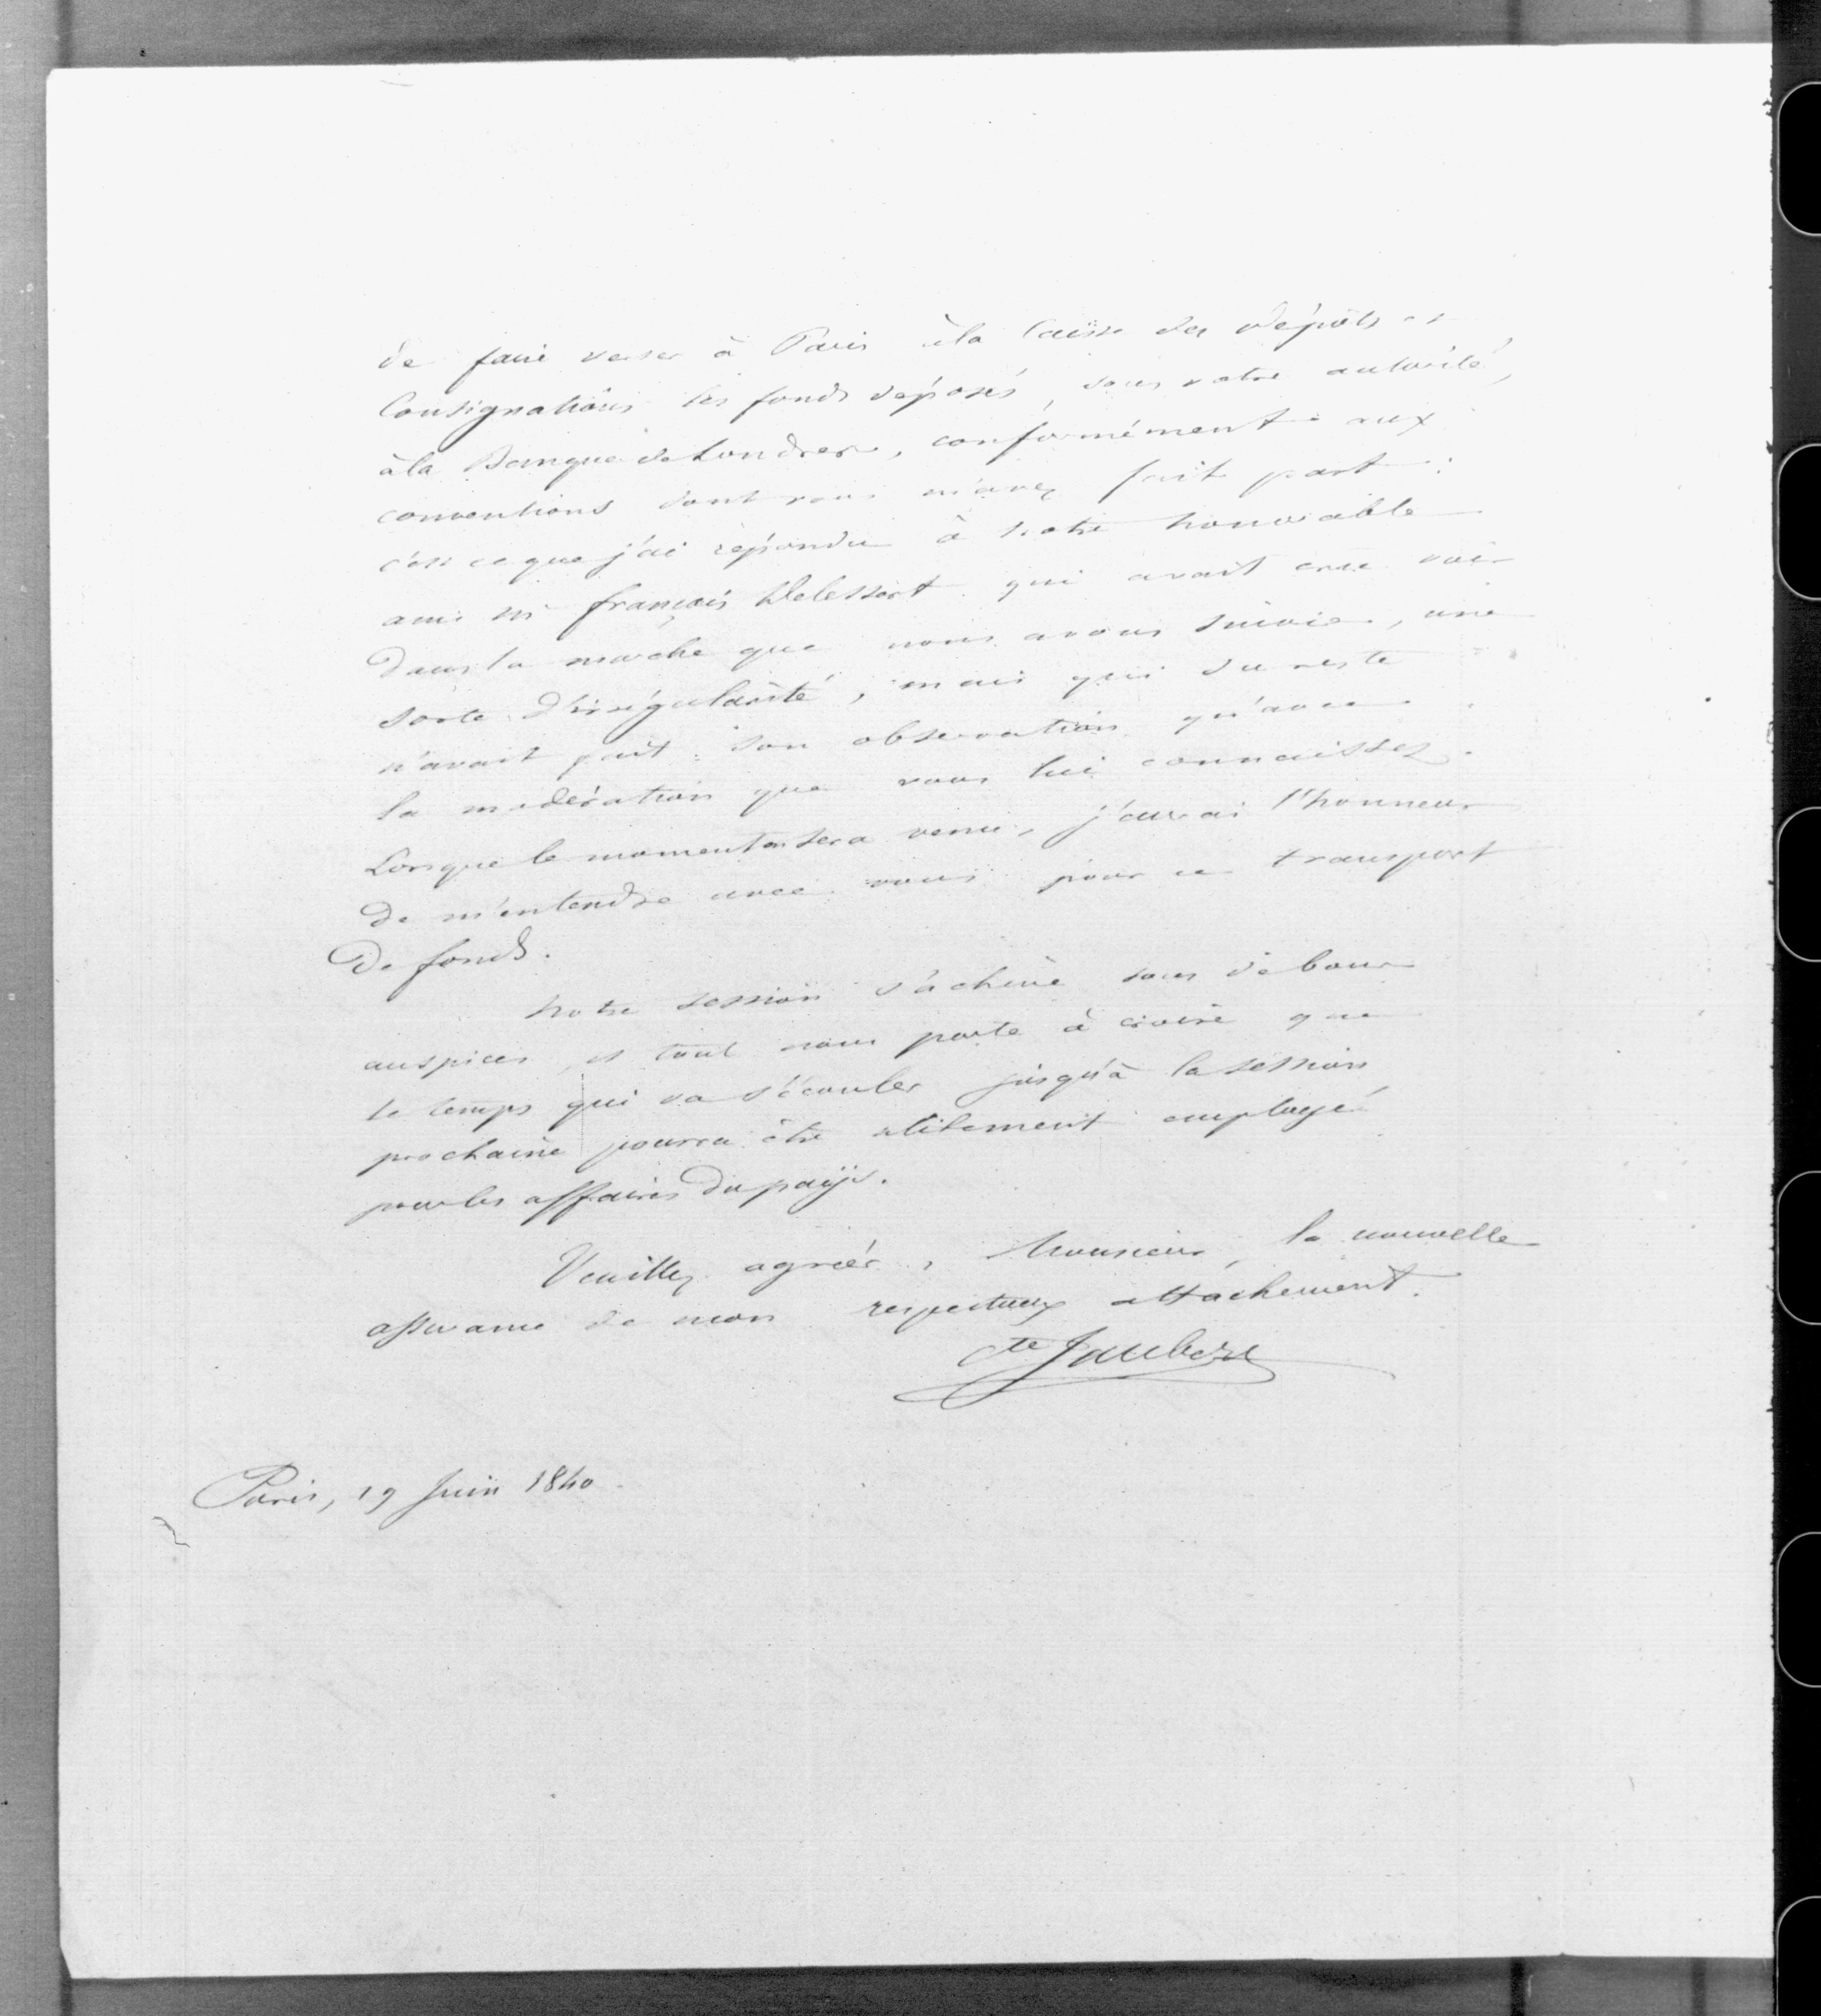 de faire verser à Paris à la Caisse des dépôts et
Consignations les fonds déposés, sous votre autorité,
à la Banque de Londres, conformément aux
conventions dont vous m'avez fait part :
c'est ce que j'ai répondu à notre honorable
ami Mr François Delessert qui avait cru voir
Dans la marche que nous avons suivie, une
sorte d'irrégularité, mais qui du reste
n'avait fait son observation qu'avec
la modération que vous lui connaissez.
Lorsque le moment en sera venu, j'aurai l'honneur
De m'entendre avec vous pour ce transport
De fonds.
Notre session s'achève sous de bons
auspices, et tout nous porte à croire que
le temps qui va s'écouler jusqu'à la session
prochaine pourra être utilement employé
pour les affaires Du pays.
Veuillez agréer, Monsieur, la nouvelle
assurance de mon respectueux attachement.
Cte Jaubert
Paris, 19 Juin 1840